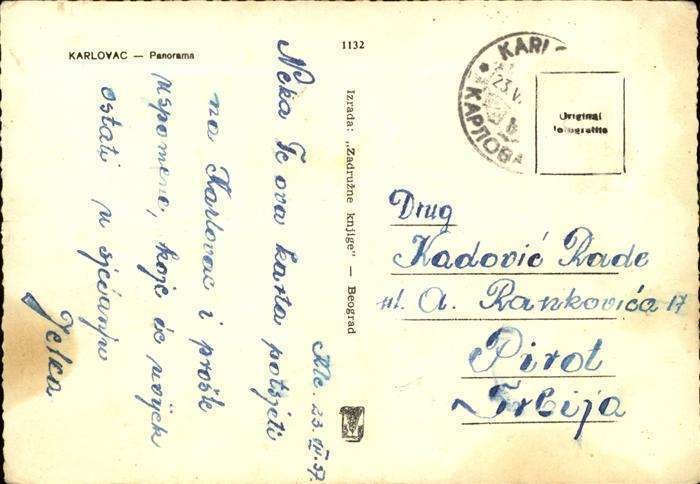 KARLOVAC — Panorama
1132
Neka Te ova karta potsjeti
na Karlovac i prošle
uspomene, koje će uvijek
ostati u sjećanju
Jelca
Klc. 23. VI. 57.
Izrada: „Zadružne knjige" — Beograd
23 V
КАРЛОВА
Original
fotografija
Drug
Kadović Rade
ul. A. Rankovića 17
Pirot
Srbija